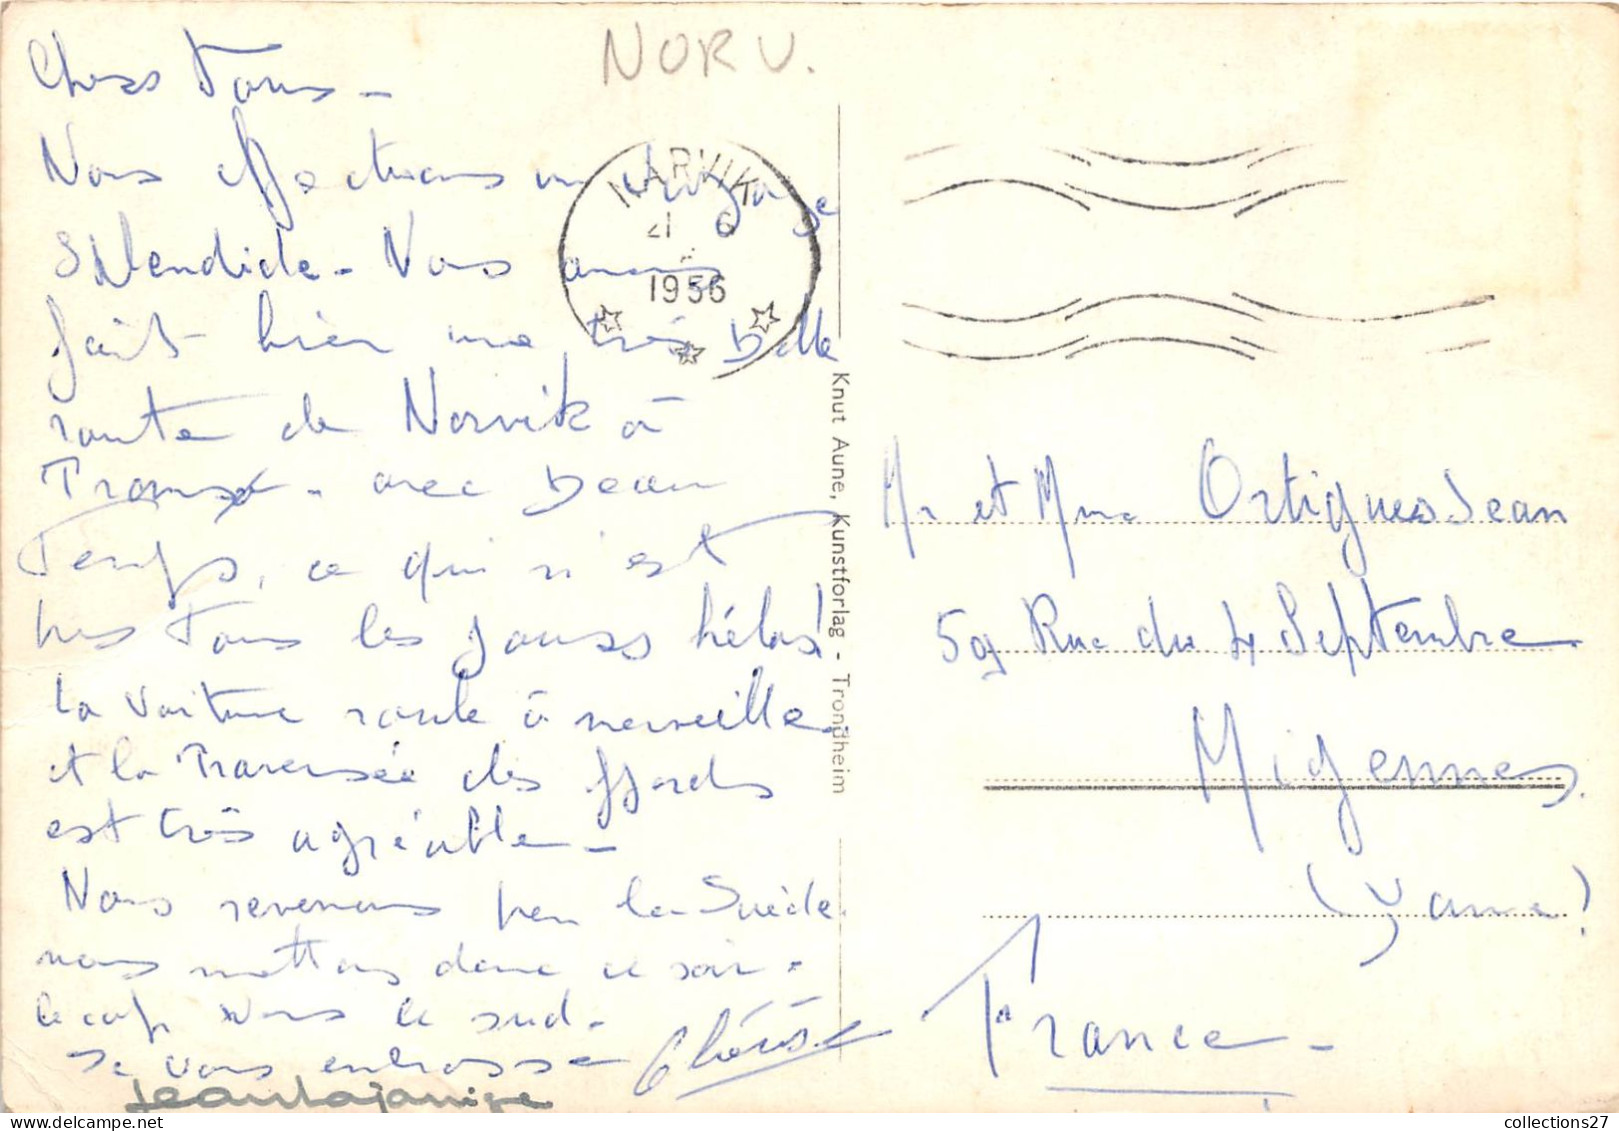 NORV.
Chers Tous -
Nous effectuons un voyage
splendide - Nous avons
fait hier une très belle
route de Norvik à
Tromsø - avec beau
Temps, ce qui n'est
pas Tous les jours hélas!
la voiture roule à merveille
et la Traversée des fjords
est très agréable -
Nous revenons par la Suède
nous mettons donc ce soir
le cap vers le sud -
Je vous embrasse
NARVIK
21 6
1956
Knut Aune, Kunstforlag - Trondheim
Mr et Mme Ortigues Jean
59 Rue du 4 Septembre
Migennes
(Yonne)
France -
collections27